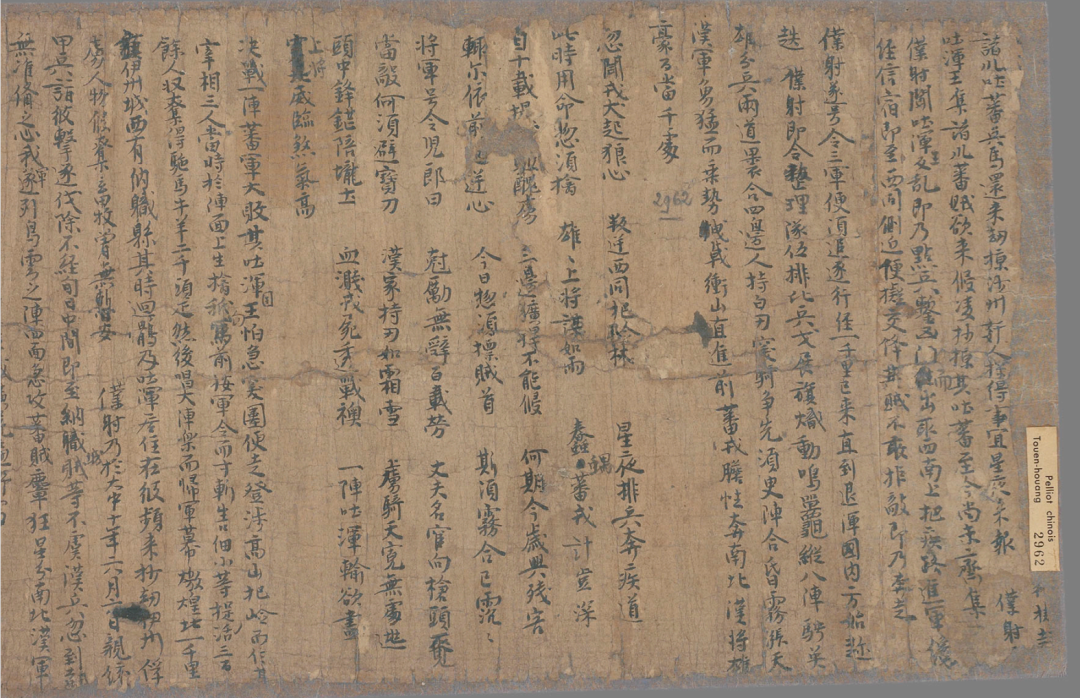 諸川吐蕃兵馬還來劫掠沙州奸人探得事宜星夜來報　僕射
吐渾王集諸川蕃賊欲來侵凌抄掠其吐蕃至今尚未齊集
僕射聞吐渾王反亂即乃點兵鏨凶門而出取西南上把疾路進軍纔
經信宿即至西同側近便擬交鋒其賊不敢拒敵即乃奔走
僕射遂号令三軍便須追逐行經一千里已來直到退渾國內方始趁
趃　僕射即令整理隊伍排比兵戈展旗幟動鳴鼉縱八陣騁英
雄分兵兩道裹合四邊人持白刃突騎爭先須臾陣合昏霧漲天
漢軍勇猛而乘勢拽戟衝山直進前蕃戎膽怯奔南北漢將雄
豪百當千處
忽聞戎犬起狼心　叛逆西同把險林　星夜排兵奔疾道
此時用命惣須擒　雄〻上將謀如雨　蠢愚蕃戎計豈深
自十載提〻　駈醜虜　三邊獷悍不能侵　何期今歲興殘害
輒尔依前起逆心　今日惣須摽賊首　斯須霧合已霃〻
將軍号令兒郎曰　尅勵無辭百戰勞　丈夫名宦向槍頭覓
當敵何須避寶刀　漢家持刃如霜雪　虜騎天寬無處逃
頭中鋒鋩陪壠土　血濺戎屍透戰襖　一陣吐渾輸欲盡
上將威臨煞氣高
決戰一陣蕃軍大敗其吐渾王怕急突圍便走登涉高山把嶮而住其
宰相三人當時於陣面上生擒祗向馬前按軍令而寸斬生口細小等活捉三百
餘人收奪得駞馬牛羊二千頭疋然後唱大陣樂而歸軍幕燉煌北一千里
鎮伊州城西有納職縣其時迴鶻及吐渾居住在彼頻來抄劫伊州俘
虜人物侵奪畜牧曾無暫安　僕射乃於大中十年六月六日親統
甲兵詣彼擊逐伐除不經旬日中間即至納職城賊等不虞漢兵忽到都
無准備之心我軍遂列烏雲之陣四面急攻蕃賊獐狂星分南北漢軍
2962
Pelliot chinois
Touen-houang
2962